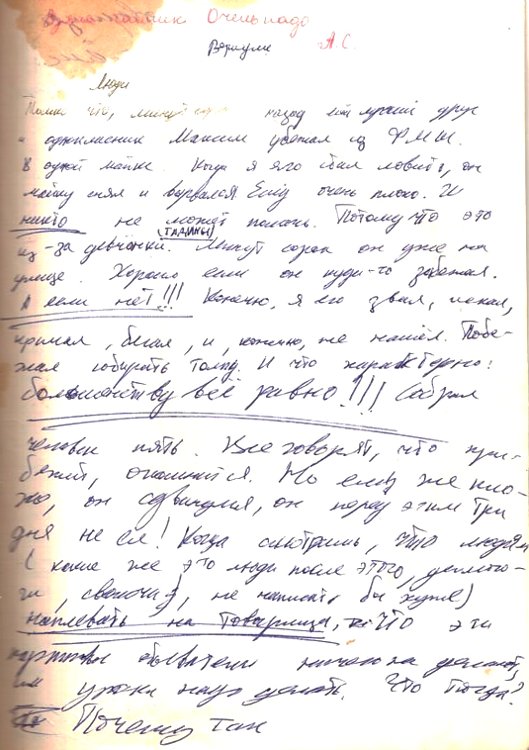 Очень надо
Вернули А.С.
Люди
что, минут назад мой лучший друг
и однокласник Максим убежал из ФМШ.
В одной майке. Когда я его стал ловить, он
майку снял и вырвался. Ему очень плохо. И
никто не может помочь. Потому что это
из-за девчонки. (ГАДИНЫ) Минут сорок он уже на
улице. Хорошо если он куда-то забежал.
А если нет!!! Конечно, я его звал, искал,
кричал, бегал, и, конечно, не нашёл. Побе-
жал собирать толпу. И что характерно:
большинству всё равно!!! Собрал
человек пять. Все говорят, что при-
бежит, очнётся. Но ему же пло-
хо, он сдвинулся, он перед этим три
дня не ел! Когда смотришь, что людям
(какие же это люди после этого,
сволочи, не написать бы хуже)
наплевать на товарища, что эти
обыватели ничего не делают,
им уроки надо делать. Что тогда?
Почему так